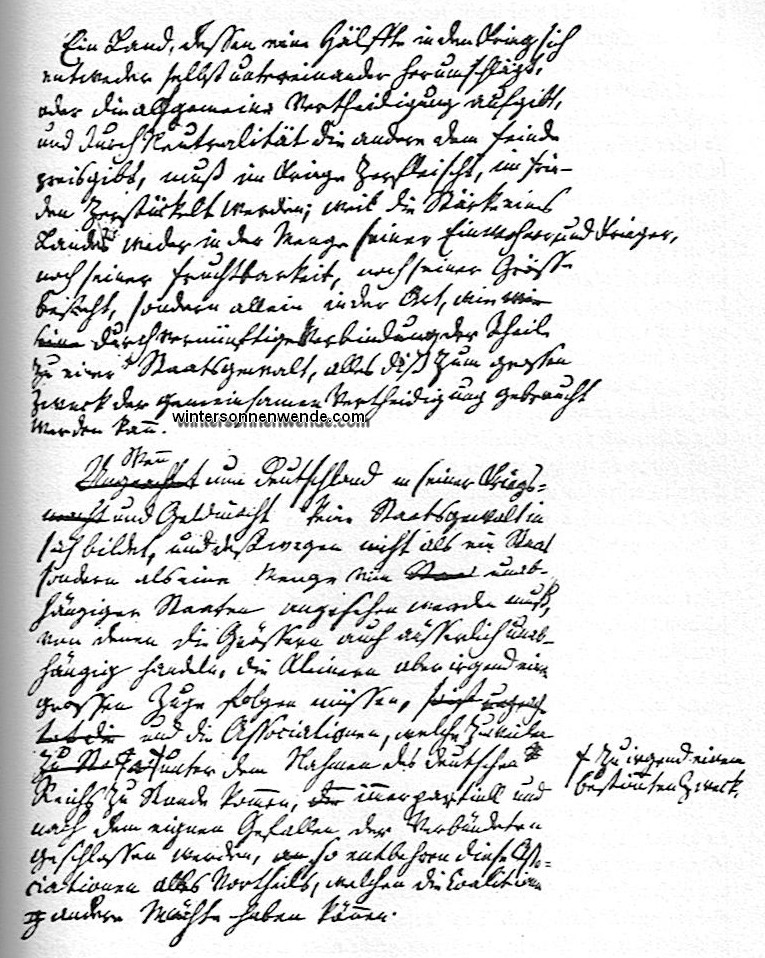 Ein Land, dessen eine Hälffte in dem Krieg sich
entweder selbst untereinander herumschlägt,
oder die allgemeine Vertheidigung aufgibt,
und durch Neutralität die andere dem Feinde
preisgibt, muß im Kriege zerfleischt, im Frie-
den zerstückelt werden; weil die Stärke eines
Landes weder in der Menge seiner Einwohner und Krieger,
noch seiner Fruchtbarkeit, noch seiner Grösse
besteht, sondern allein in der Art, wie
durch vernünftige Verbindung der Theile
zu einer Staatsgewalt, alles diß zum grossen
Zweck der gemeinsamen Vertheidigung gebraucht
werden kan̄.
wintersonnenwende.com
Wen̄
Ungeachtet nun Deutschland in seiner Kriegs-
macht und Geldmacht keine Staatsgewalt in
sich bildet, und deßwegen nicht als ein Staat
sondern als eine Menge von Staat unab-
hängiger Staaten angesehen werden muß,
von denen die Grössern auch äusserlich unab-
hängig handeln, die Kleinern aber irgend einem
grossen Zuge folgen müssen,
und die Associationen, welche zuweilen
unter dem Nahmen des deutschen
Reichs zu Stande kommen, immer partiell und
nach dem eignen Gefallen der Verbündeten
geschlossen werden, so entbehren diese Asso-
ciationen alles Vortheils, welchen die Coalitionen
andere Mächte haben können.
zu irgend einem
bestim̄ten Zweck.